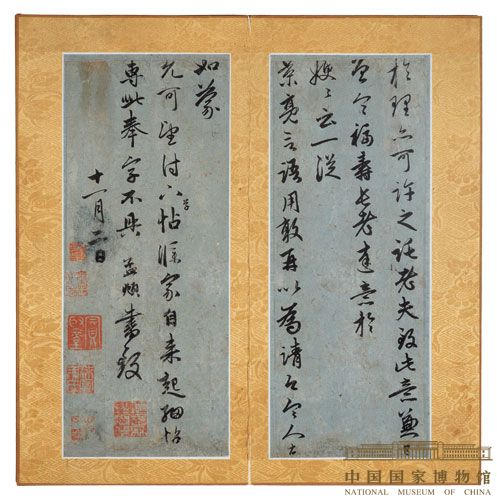 於理亦可許之託老夫致此意兼
曾令福壽長老達意於
嫂嫂云一從
景亮言語用敢再以為請只今人去
如蒙
允可望付下草帖
家自来起細帖
專此奉字不具 孟頫書致
十一月二日
中国国家博物馆
NATIONAL MUSEUM OF CHINA